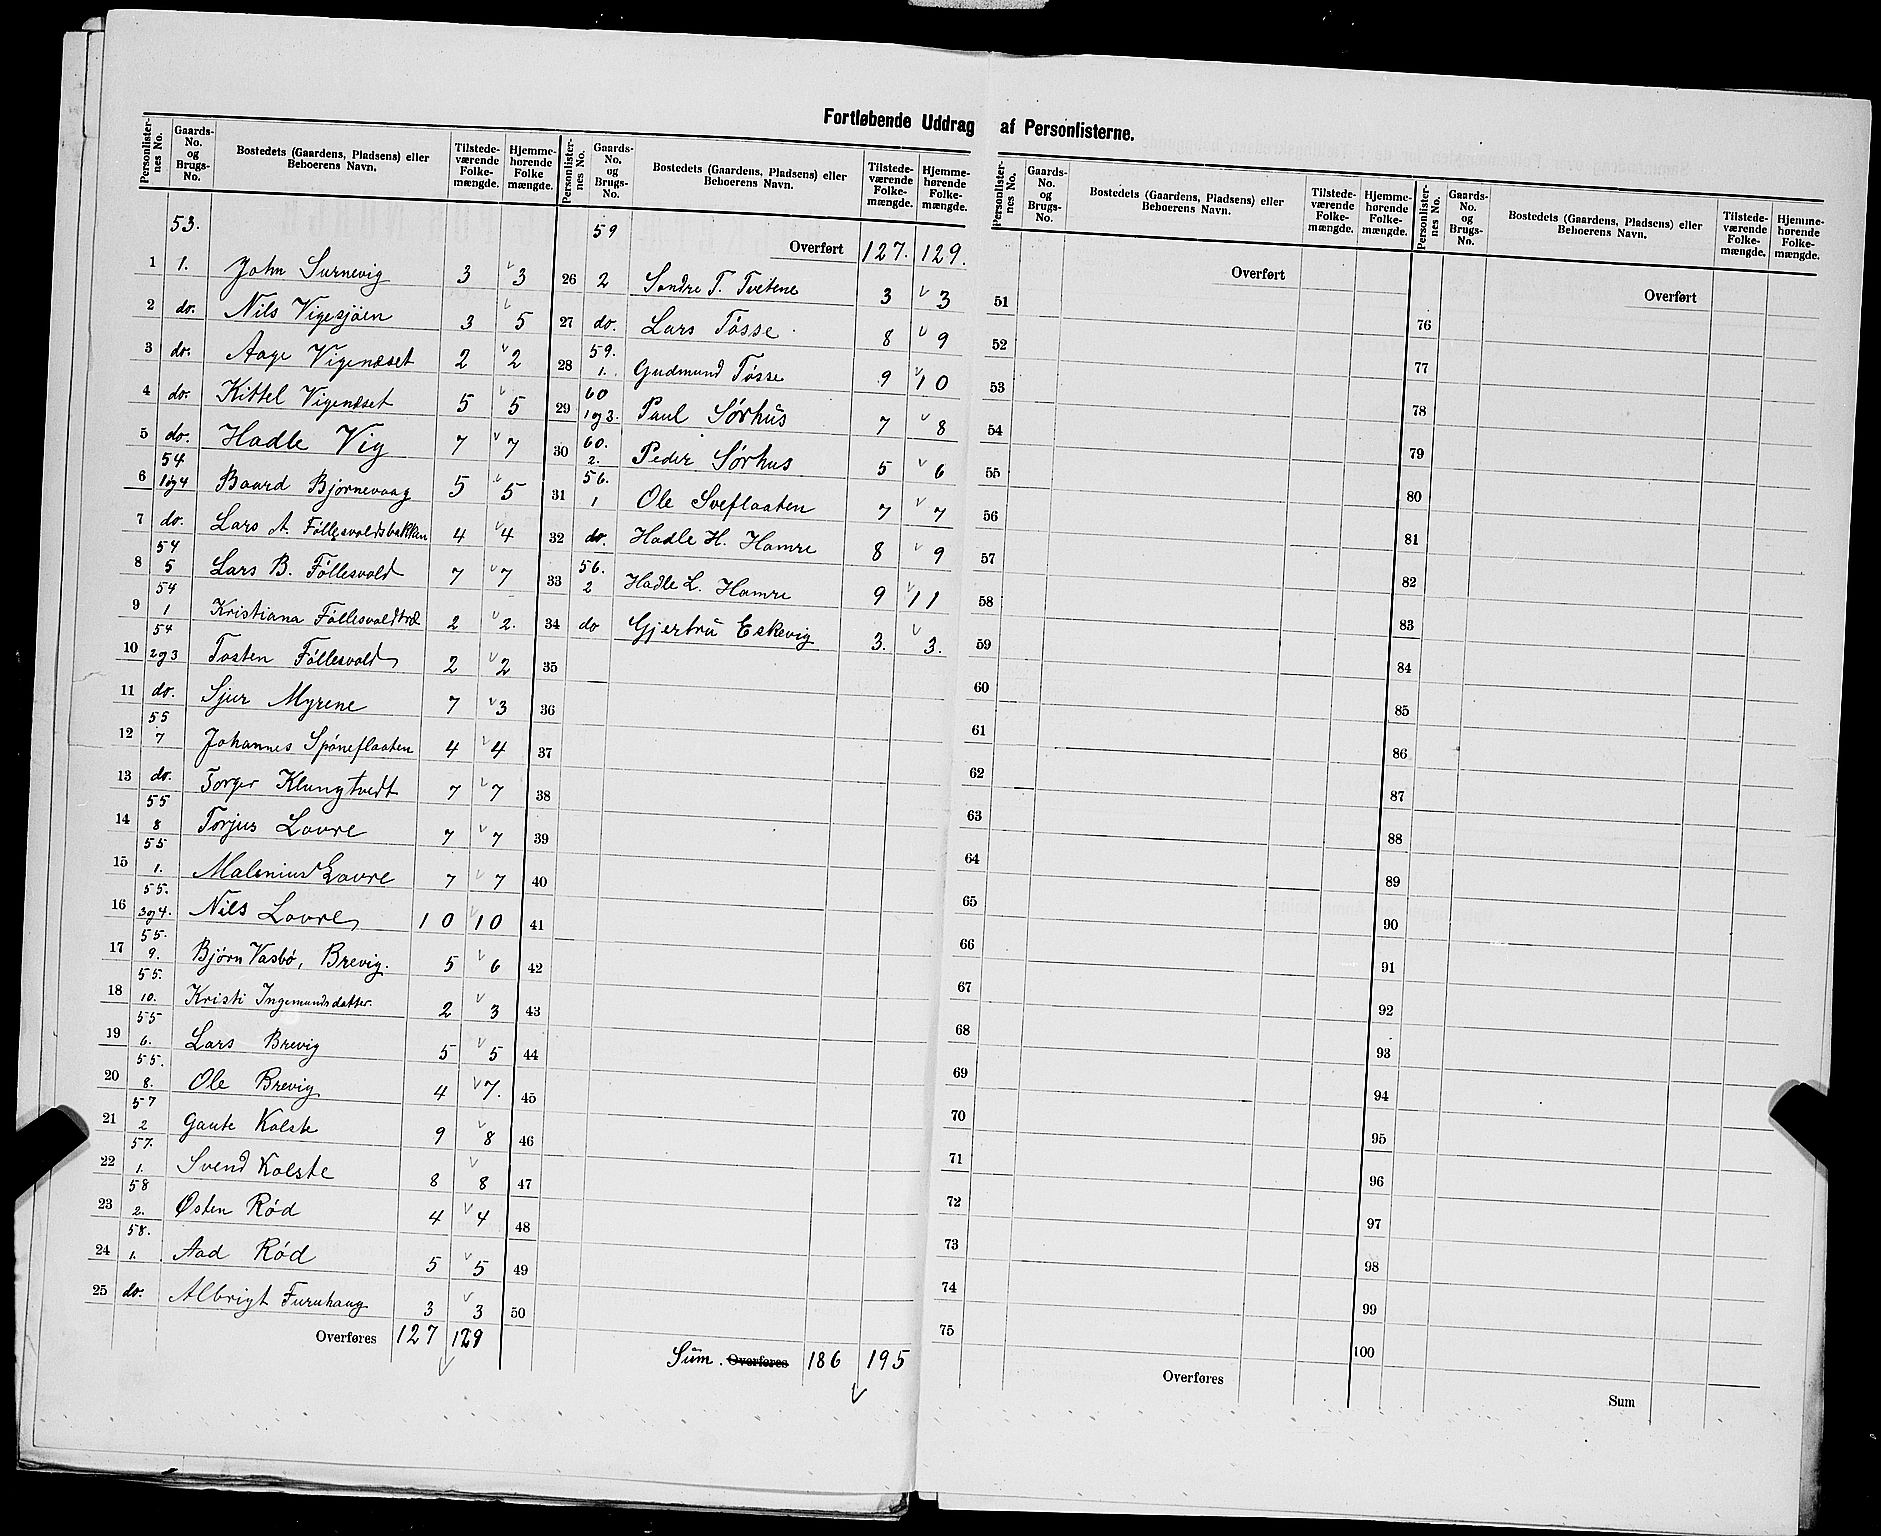 Fortløbende Uddrag af Personlisterne.
Personlister-nes No. Gaards-No. og Brugs-No. Bostedets (Gaardens, Pladsens) eller Beboerens Navn. Tilstede-værende Folke-mængde. Hjemme-hørende Folke mængde.
53.
1 1. John Surnevig 3 3
2 do. Nils Vigesjøen 3 5
3 do. Aage Vigenæset 2 2
4 do. Kittel Vigenæset 5 5
5 do. Hadle Vig 7 7
54
6 1og4 Baard Bjørnevaag 5 5
7 do. Lars A. Føllesvoldsbakken 4 4
54
8 5 Lars B. Føllesvold 7 7
54
9 1 Kristiana Føllesvoldtræ 2 2.
54
10 2og3 Tosten Føllesvold 2 2
11 do. Sjur Myrene 7 3
55
12 7 Johannes Spøneflaaten 4 4
13 do. Torger Klungtvedt 7 7
55
14 8 Torjus Lovre 7 7
55
15 1. Malenius Lovre 7 7
55.
16 3og4. Nils Lovre 10 10
55.
17 9. Bjørn Vasbø, Brevig. 5 6
55.
18 10. Kristi Ingemundsdatter. 2 3
55
19 6. Lars Brevig 5 5
55.
20 8. Ole Brevig 4 7.
57
21 2 Gaute Kolste 9 8
57.
22 1. Svend Kolste 8 8
58
23 2. Østen Rød 4 4
58.
24 1. Aad Rød 5 5
25 do. Albrigt Furuhaug 3 3
Overføres 127 129
Personlister-nes No. Gaards-No. og Brugs-No. Bostedets (Gaardens, Pladsens) eller Beboerens Navn. Tilstede-værende Folke-mængde. Hjemme-hørende Folke-mængde.
59
Overført 127. 129.
26 2 Sondre T. Tvetene 3 3
27 do. Lars Tøsse 8 9
59.
28 1. Gudmund Tøsse 9 10
60
29 1og3. Paul Sørhus 7 8
60.
30 2. Peder Sørhus 5 6
56.
31 1 Ole Sveflaaten 7 7
32 do. Hadle H. Hamre 8 9
56.
33 2 Hadle L. Hamre 9 11
34 do Gjertru Eskevig 3. 3.
35
36
37
38
39
40
41
42
43
44
45
46
47
48
49
50
Sum. Overføres 186 195
Personlister-nes No. Gaards-No. og Brugs-No. Bostedets (Gaardens, Pladsens) eller Beboerens Navn. Tilstede-værende Folke-mængde. Hjemme-hørende Folke-mængde.
Overført
51
52
53
54
55
56
57
58
59
60
61
62
63
64
65
66
67
68
69
70
71
72
73
74
75
Overføres
Personlister-nes No. Gaards-No. og Brugs-No. Bostedets (Gaardens, Pladsens) eller Beboerens Navn. Tilstede-værende Folke-mængde. Hjemme-hørende Folke-mængde.
Overført
76
77
78
79
80
81
82
83
84
85
86
87
88
89
90
91
92
93
94
95
96
97
98
99
100
Sum